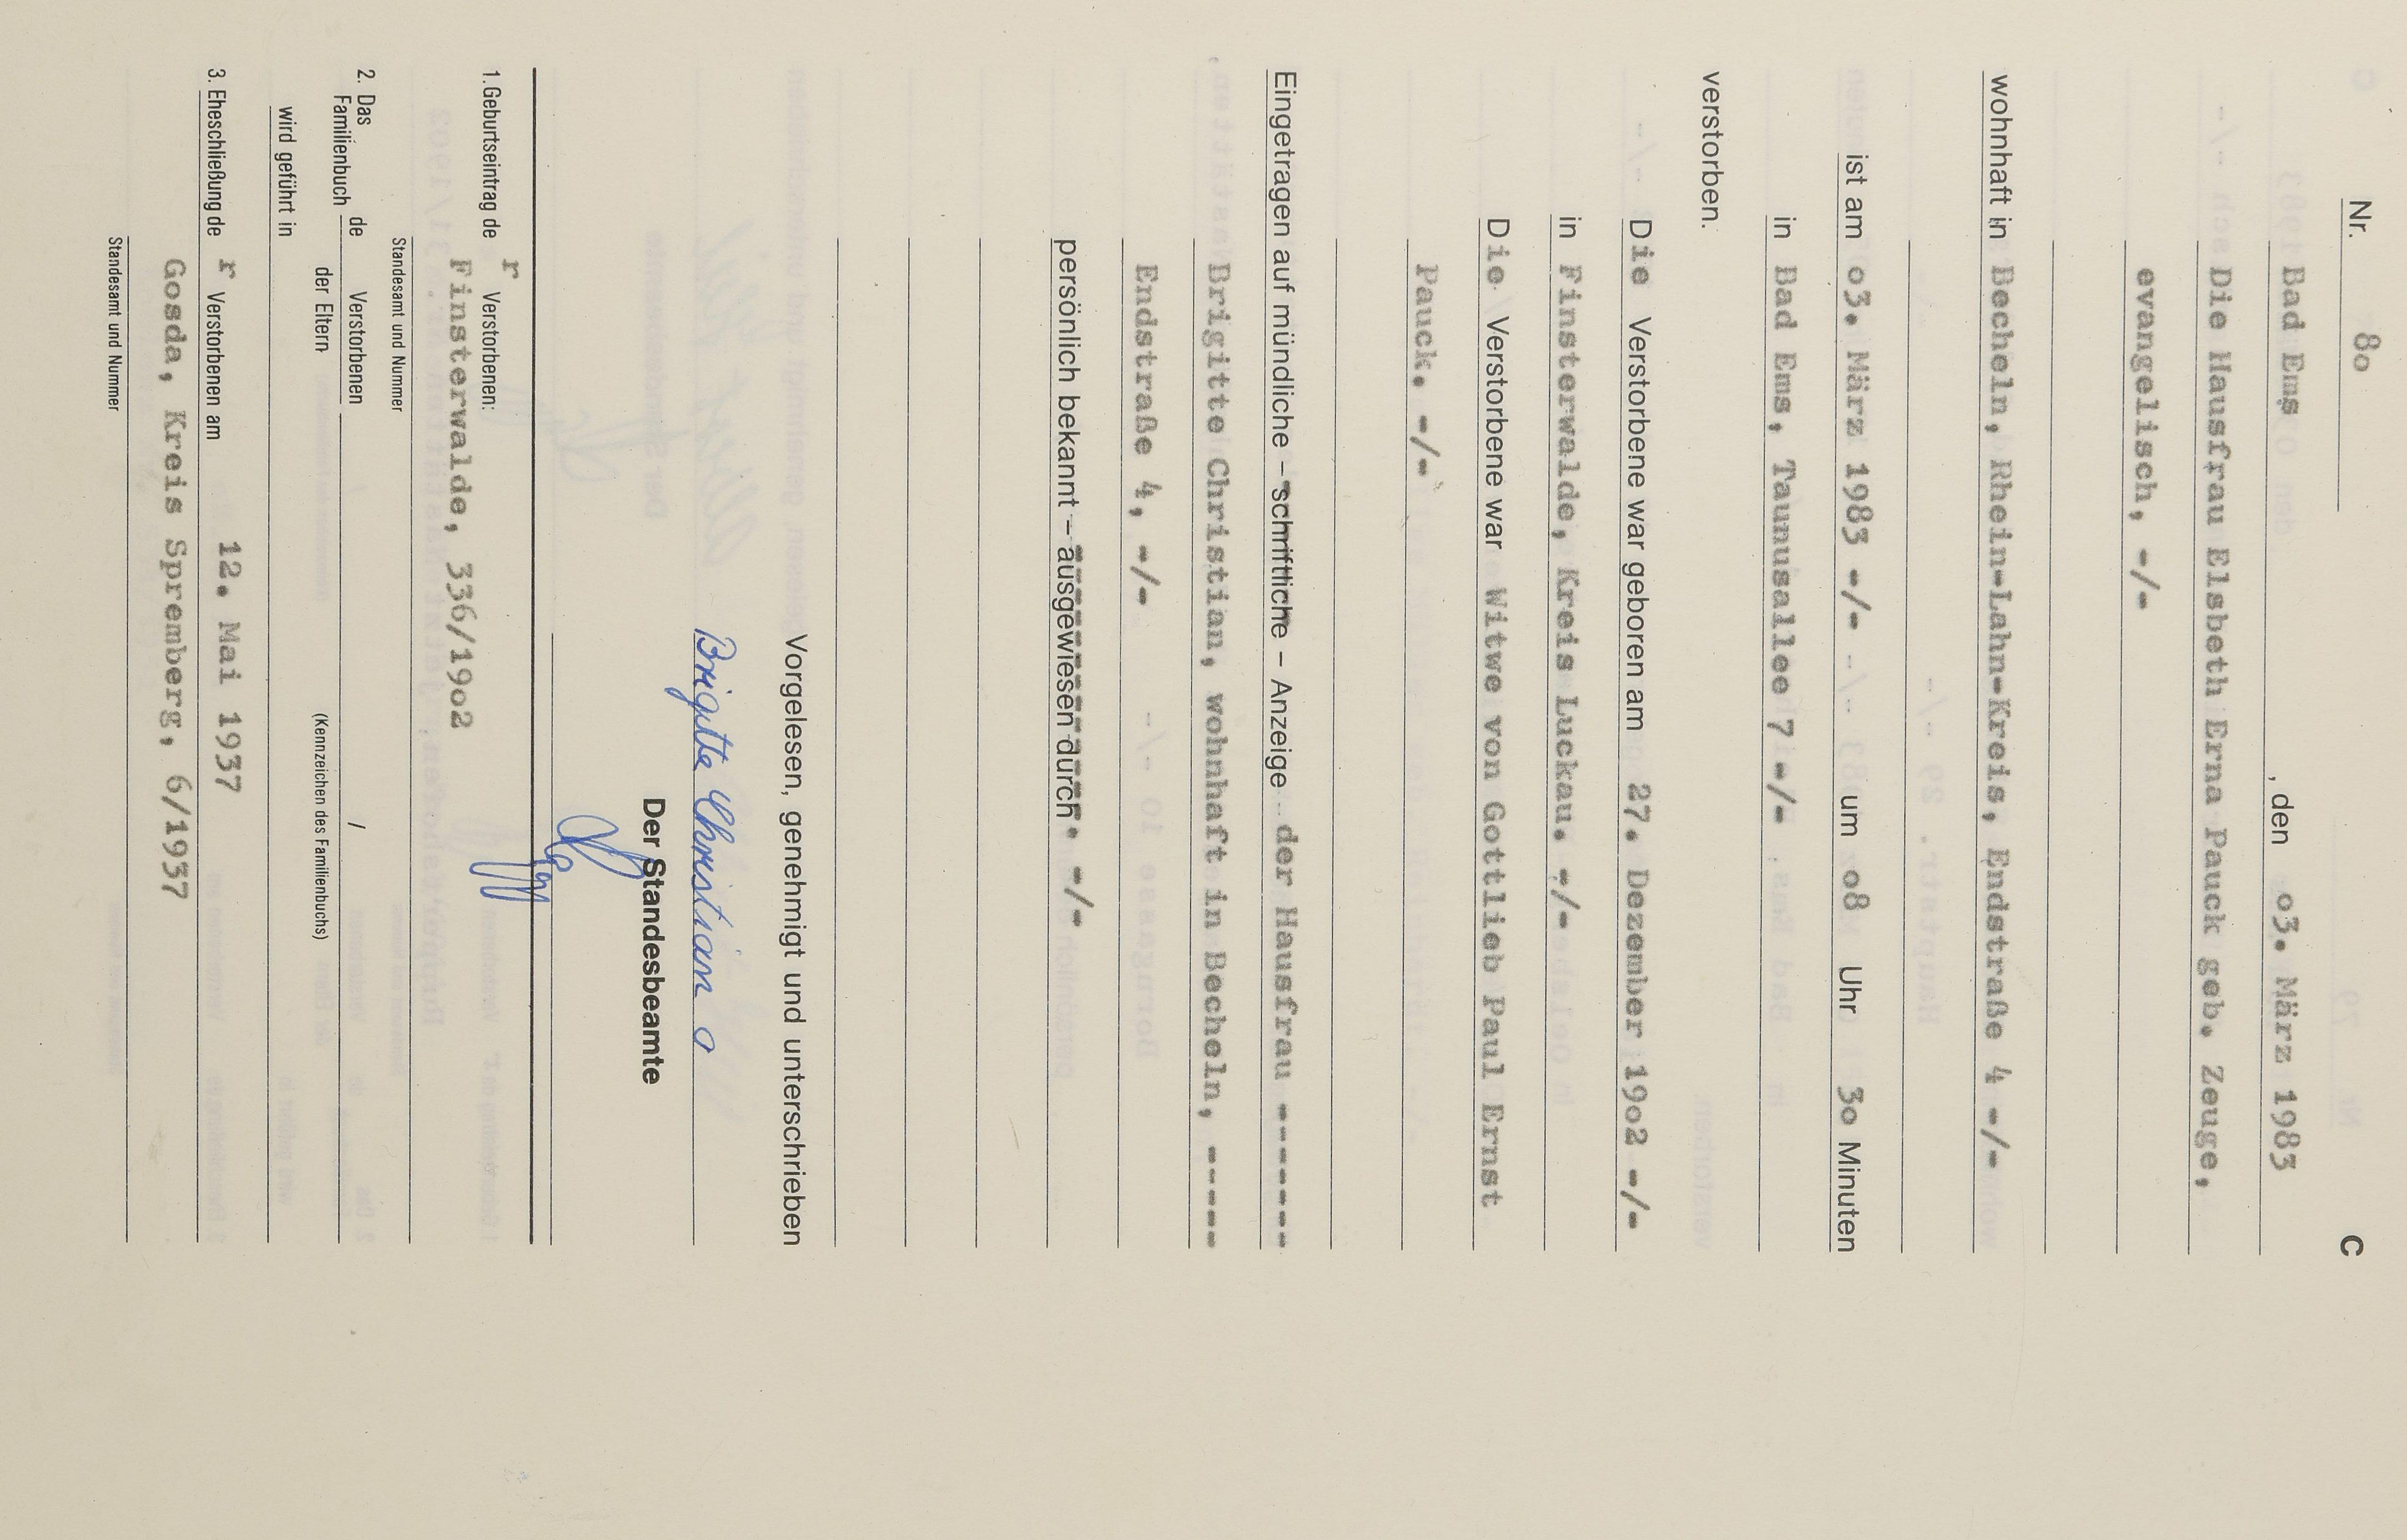 Nr. 8o C
Bad Ems, den o3. März 1983
Die Hausfrau Elsbeth Erna Pauck geb. Zeuge,
evangelisch, -/-
wohnhaft in Becheln, Rhein-Lahn-Kreis, Endstraße 4 -/-
ist am o3. März 1983 -/- um o8 Uhr 3o Minuten
in Bad Ems, Taunusallee 7 -/-
verstorben.
Die Verstorbene war geboren am 27. Dezember 19o2 -/-
in Finsterwalde, Kreis Luckau. -/-
Die Verstorbene war Witwe von Gottlieb Paul Ernst
Pauck. -/-
Eingetragen auf mündliche – schriftliche – Anzeige der Hausfrau -------
Brigitte Christian, wohnhaft in Becheln, -----
Endstraße 4, -/-
persönlich bekannt – ausgewiesen durch. -/-
Vorgelesen, genehmigt und unterschrieben
Brigitte Christian
Der Standesbeamte
1. Geburtseintrag der Verstorbenen:
Finsterwalde, 336/19o2
Standesamt und Nummer
2. Das Familienbuch de Verstorbenen / der Eltern
(Kennzeichen des Familienbuchs)
wird geführt in
3. Eheschließung der Verstorbenen am 12. Mai 1937
Gosda, Kreis Spremberg, 6/1937
Standesamt und Nummer